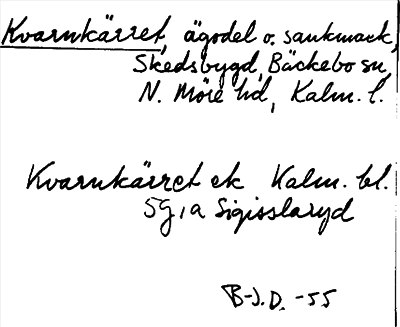 Kvarnkärret, ägodel o. sankmark,
Skedsbygd, Bäckebo sn,
N. Möre hd, Kalm. l.
Kvarnkärret ek Kalm. bl.
5g, a Sigisslaryd
B-J.D. -55